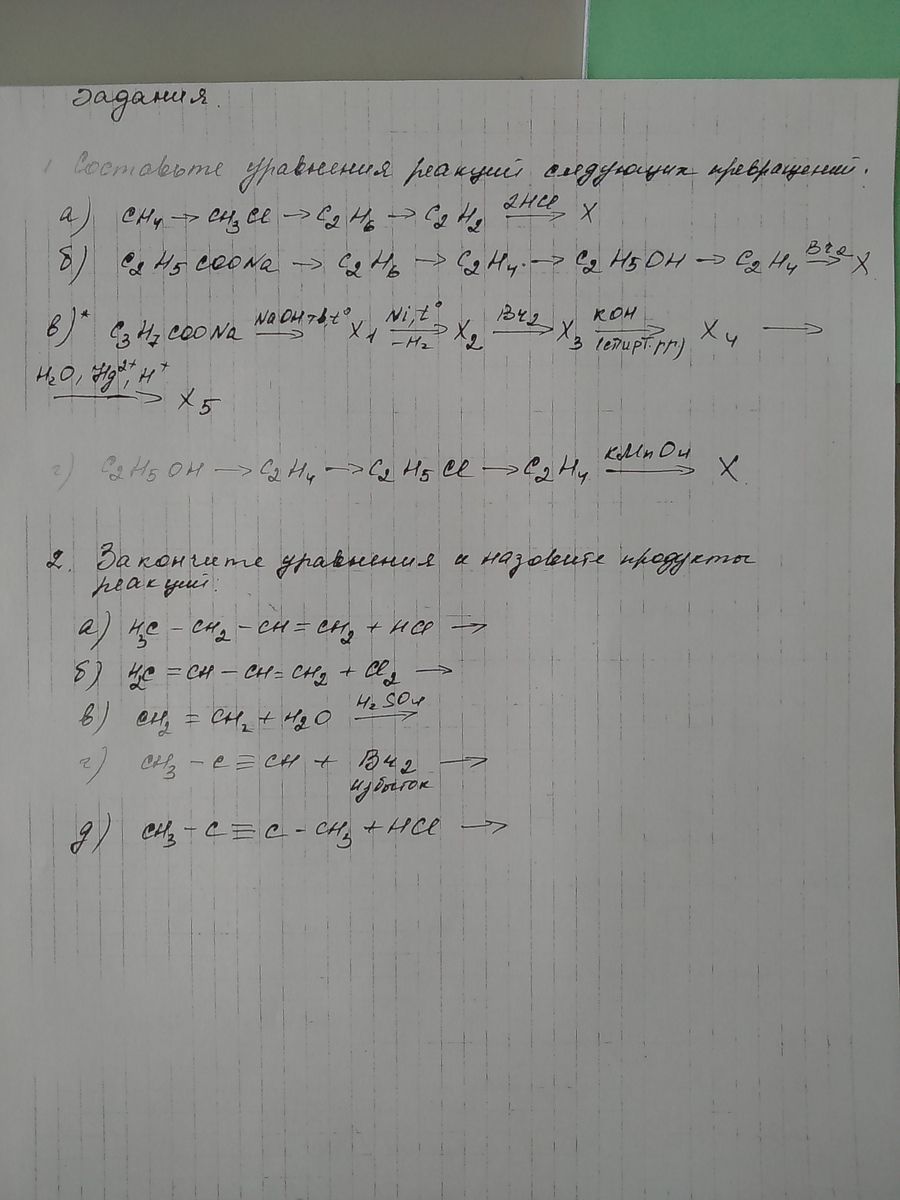 Задания.
1 Составьте уравнения реакций следующих превращений.
а) CH4 → CH3Cl → C2H6 → C2H2 2HCl → X
б) C2H5COONa → C2H6 → C2H4 → C2H5OH → C2H4 Br2 → X
в)* C3H7COONa NaOH тв, t° → X1 Ni, t° -H2 → X2 Br2 → X3 KOH (спирт. рр) → X4 →
H2O, Hg2+, H+ → X5
г) C2H5OH → C2H4 → C2H5Cl → C2H4 KMnO4 → X
2. Закончите уравнения и назовите продукты
реакций:
а) H3C - CH2 - CH = CH2 + HCl →
б) H2C = CH - CH = CH2 + Cl2 →
в) CH2 = CH2 + H2O H2SO4 →
г) CH3 - C ≡ CH + Br2 →
избыток
д) CH3 - C ≡ C - CH3 + HCl →